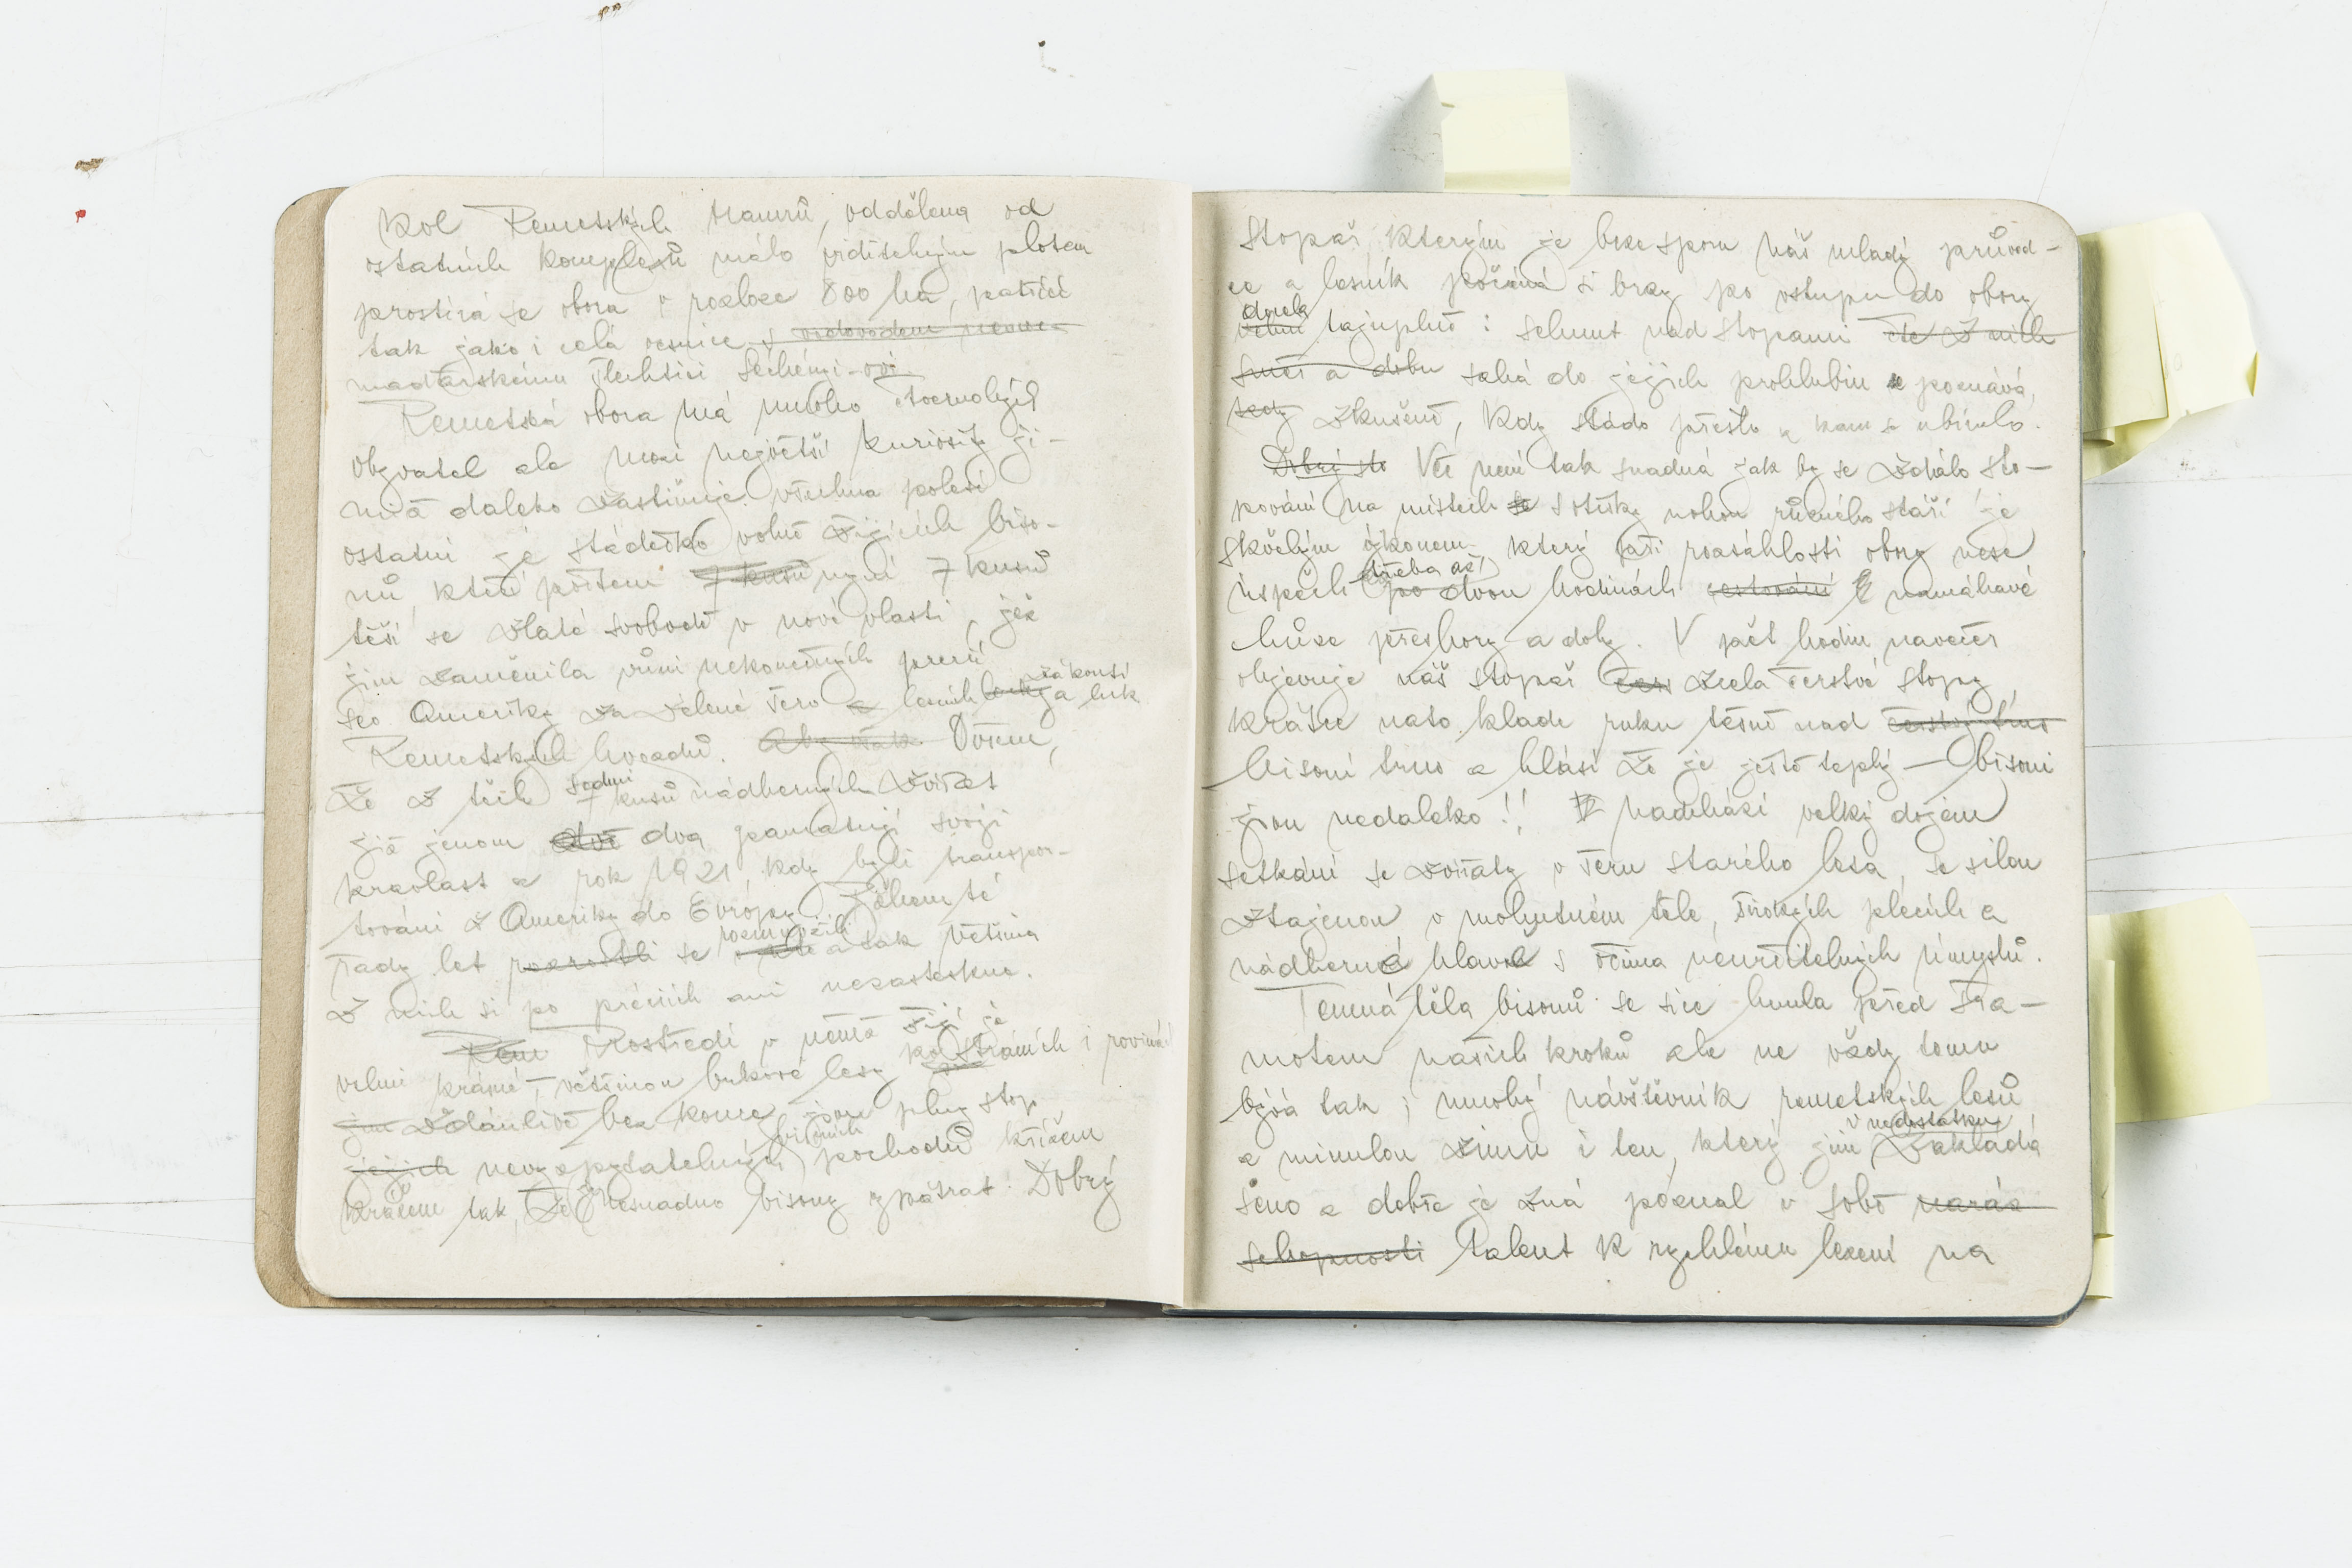 Kol Remetských Hamrů, oddělena od
ostatních komplexů málo viditelným plotem
prostírá se obora v rozloze 800 ha, patřící
tak jako i celá vesnice s vodovodem
maďarskému šlechtici Séchényi-ovi.
Remetská obora má mnoho čtvernohých
obyvatel ale mezi největší kuriosity ji-
mžž daleko zastiňuje všechna polesí
ostatní je stádečko volně žijících biso-
nů, kteří počtem 7 kusů nyní 7 kusů
těší se zlaté svobodě v nové vlasti, jež
jim zaměnila vůni nekonečných prerií
sev. Ameriky za zelené šero a lesních zákoutí a luk
Remetských hvozdů. Aby však Ovšem,
že z těch sedmi kusů nádherných zvířat
již jenom dvě dva pamatují svoji
pravlast a rok 1921, kdy byli transpor-
továni z Ameriky do Evropy. Během té
řady let rozrostli se rozmnožili a tak většina
z nich si po prériích ani nezasteskne.
Rem Prostředí v němž žijí je
velmi krásné, většinou bukové lesy po stráních i rovinách
jsou zdánlivě bez konce jsou plny stop
jejich nevyzpytatelných bisoních pochodů křížem
krážem tak, že je nesnadno bisony vypátrat. Dobrý
stopař, kterým je beze sporu náš mladý průvod-
ce a lesník počíná si brzy po vstupu do obory
velmi zcela tajuplně: sehnut nad stopami že z nich
směr a dobu sahá do jejich prohlubin a poznává,
tedy zkušeně, kdy stádo přešlo a kam se ubíralo.
Dobrý sto Věc není tak snadná jak by se zdálo sto-
pování na místech se s otisky nohou různého stáří je
skvělým výkonem, který při rozsáhlosti obory nese
úspěch třeba až po dvou hodinách cestování namáhavé
chůze přes hory a doly. V pět hodin navečer
objevuje náš stopař čers zcela čerstvé stopy,
krátce nato klade ruku těsně nad čerstvý trus
bisoní trus a hlásí že je ještě teplý — bisoni
jsou nedaleko!! Nadchází velký dojem
setkání se zvířaty v šeru starého lesa, se silou
ztajenou v mohutném těle, širokých plecích a
nádherné hlavě s očima neurčitelných úmyslů.
Temná těla bisonů se sice hnula před šra-
motem našich kroků ale ne vždy tomu
bývá tak; mnohý návštěvník remetských lesů
a minulou zimu i ten, který jim v nedostatku zakládá
seno a dobře je zná poznal v sobě naráz
schopnosti talent k rychlému lezení na